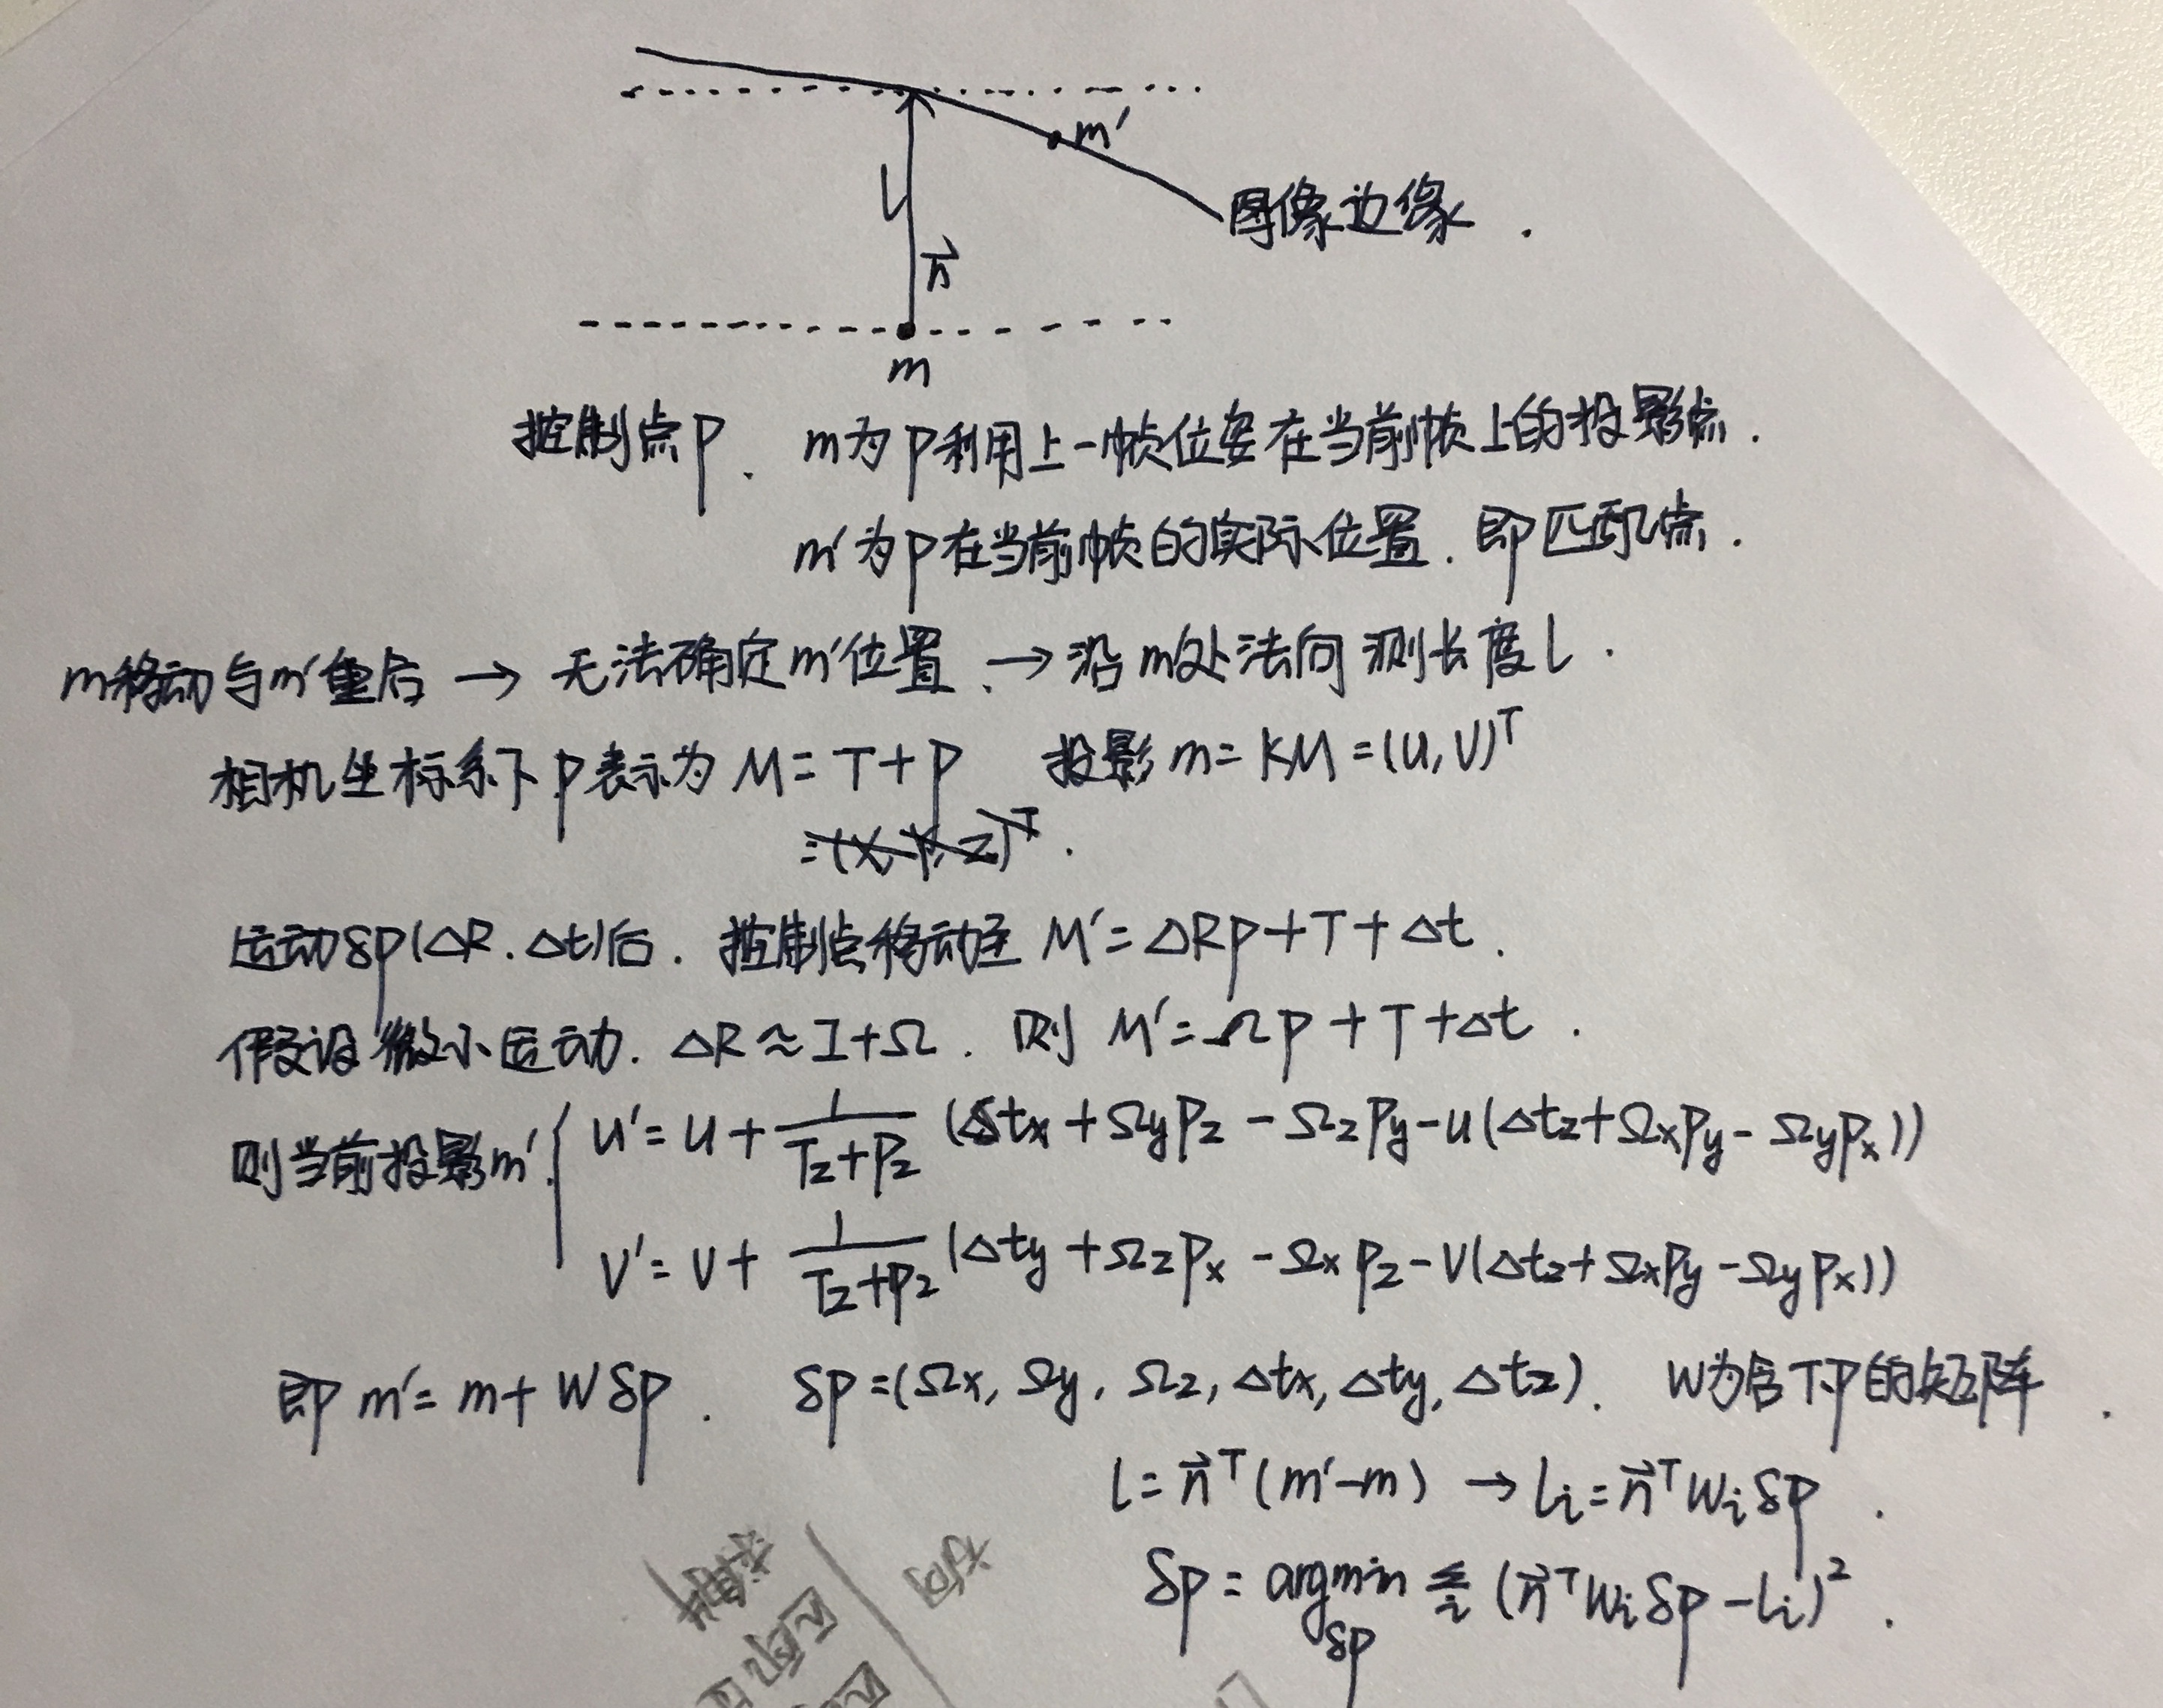 m′
l
图像边缘.
n⃗
m
控制点p. m为p利用上一帧位姿在当前帧上的投影点.
m′为p在当前帧的实际位置. 即匹配点.
m移动与m′重合 → 无法确定m′位置. → 沿m处法向测长度l.
相机坐标系下p表示为 M = T + p 投影 m = KM = (u, v)ᵀ
= (X, Y, Z)ᵀ.
运动δp(ΔR. Δt)后. 控制点移动至 M′ = ΔRp + T + Δt.
假设微小运动. ΔR ≈ I + Ω. 则 M′ = Ωp + T + Δt.
则当前投影m′. { u′ = u + 1/(Tz + pz) (Δtx + Ωy pz − Ωz py − u(Δtz + Ωx py − Ωy px))
v′ = v + 1/(Tz + pz) (Δty + Ωz px − Ωx pz − v(Δtz + Ωx py − Ωy px))
即 m′ = m + Wδp. δp = (Ωx, Ωy, Ωz, Δtx, Δty, Δtz). W为含T.p的矩阵.
l = n⃗ᵀ(m′ − m) → li = n⃗ᵀ Wi δp.
δp = argmin_δp Σi (n⃗ᵀ Wi δp − li)².